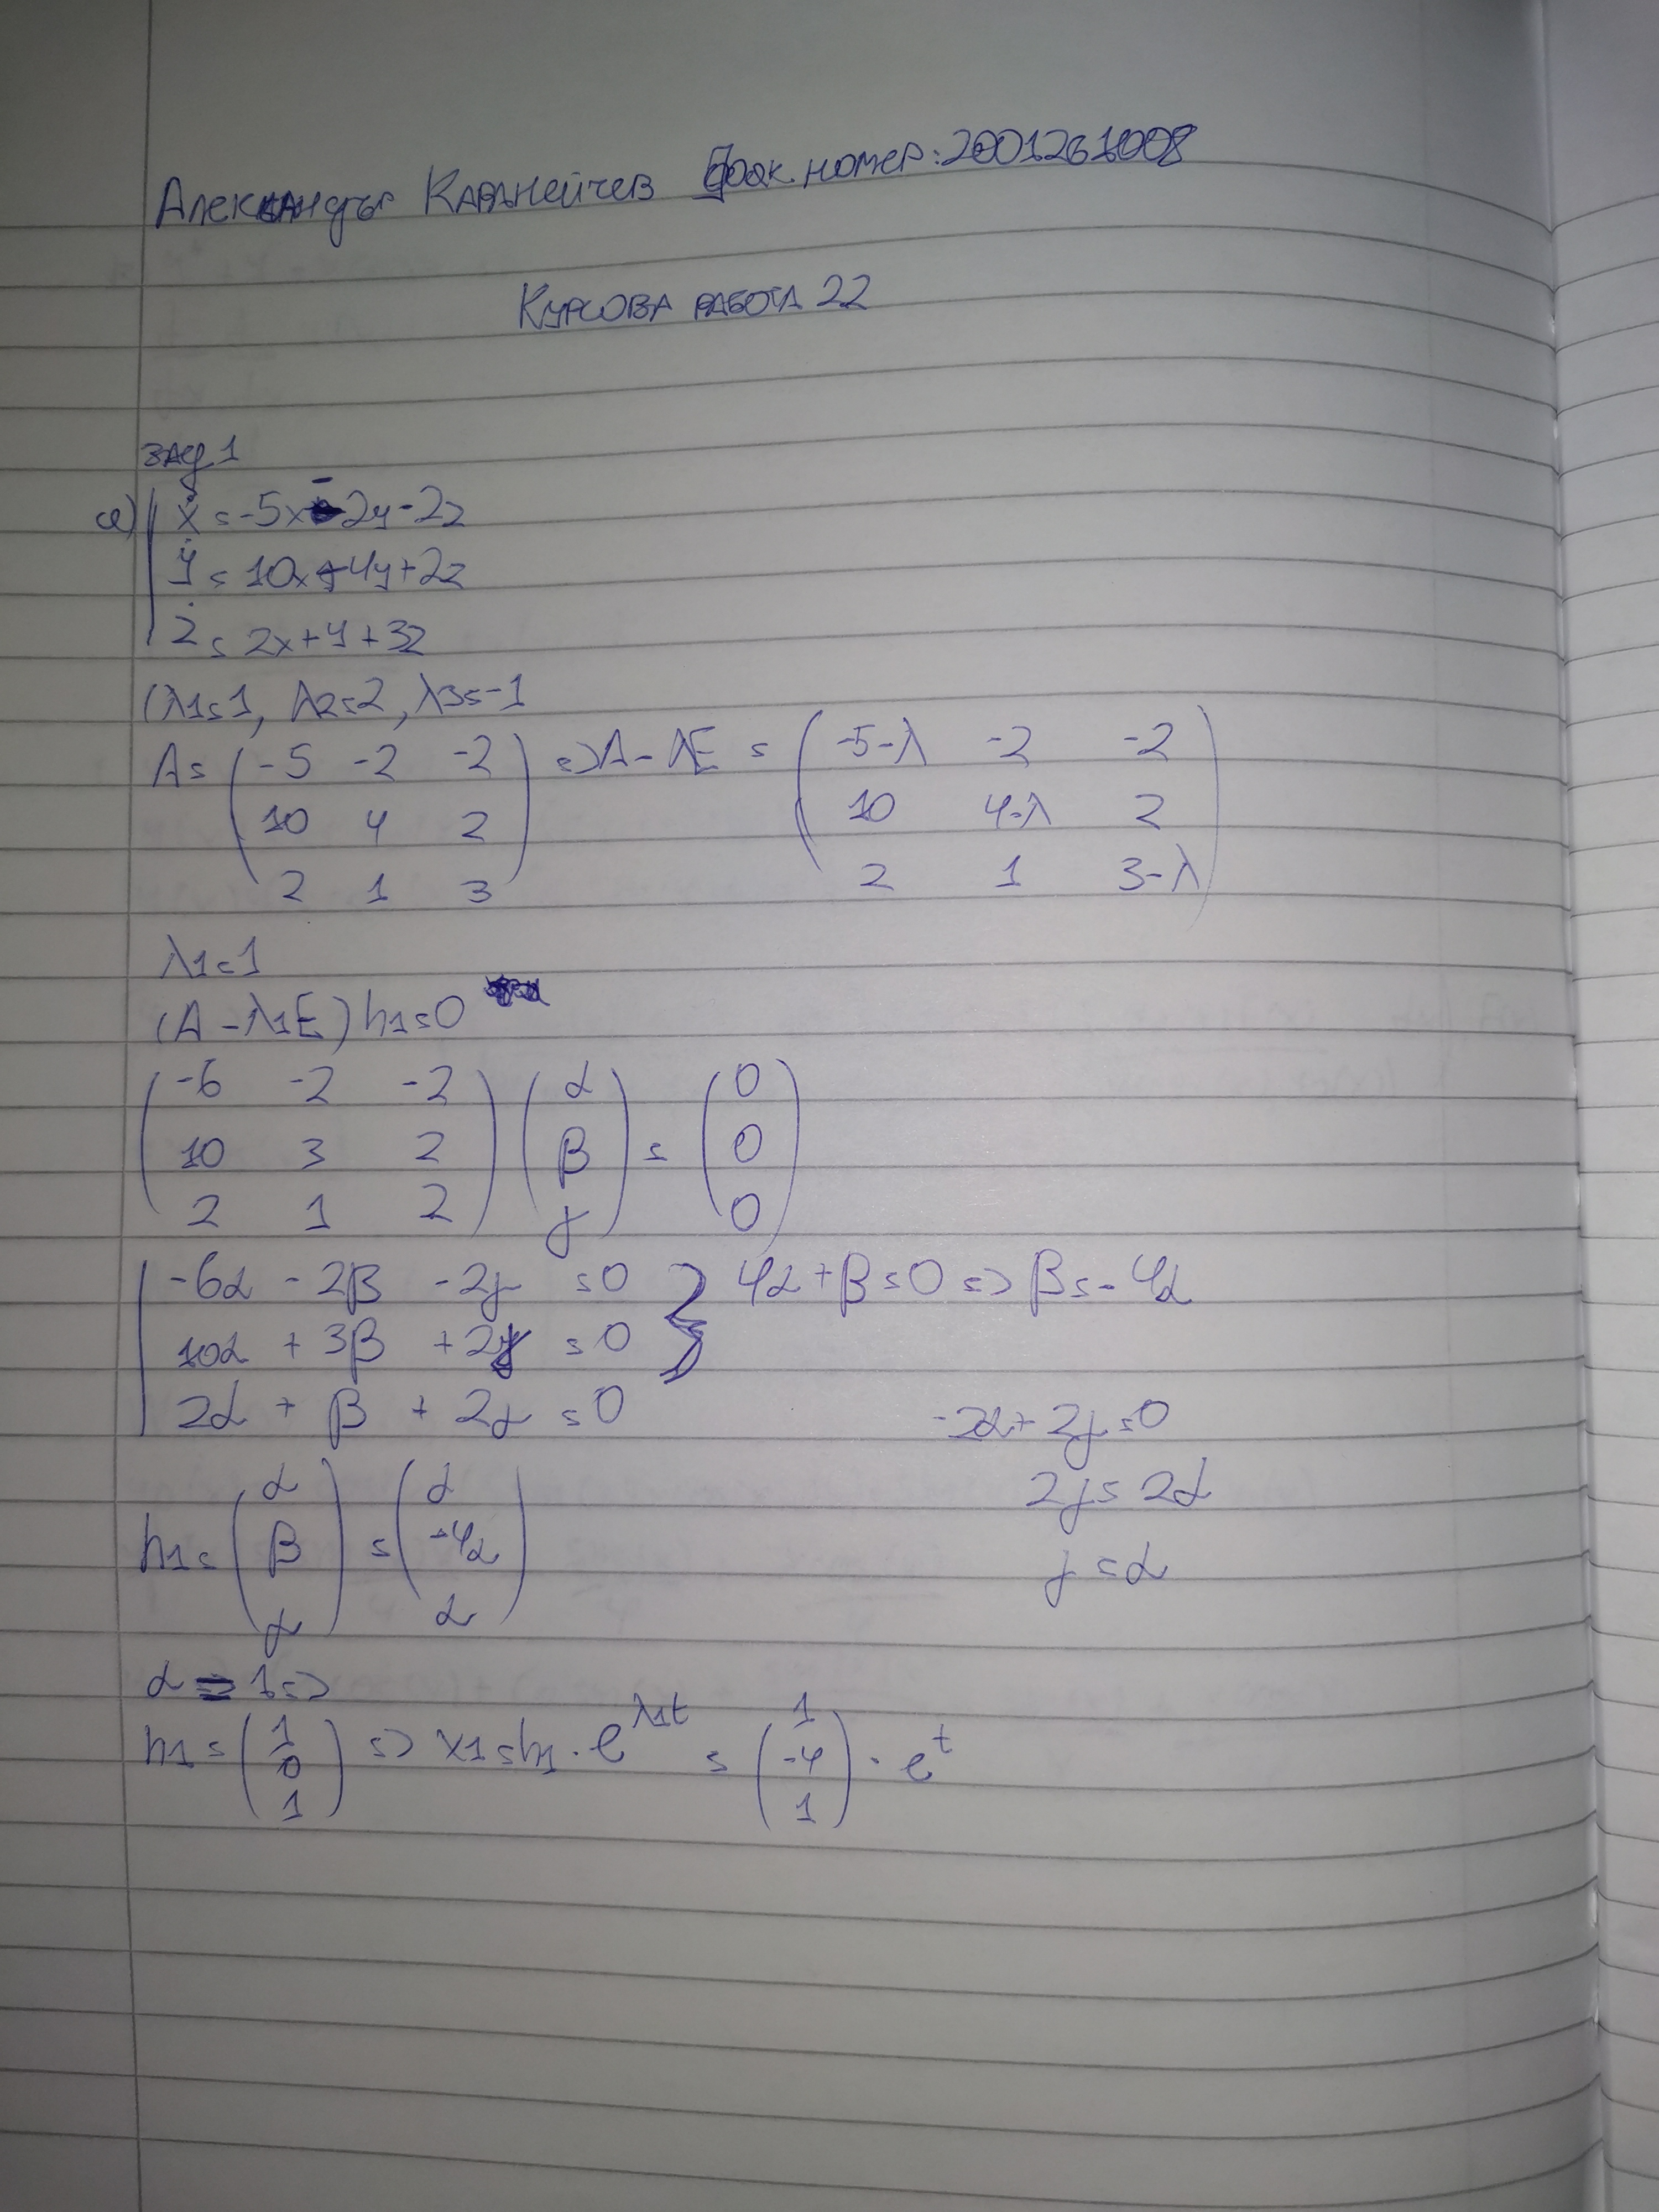 Александър Каранейчев Фак. номер: 2001261008
Курсова работа 22
зад 1
а) | ẋ = -5x - 2y - 2z
ẏ = 10x + 4y + 2z
ż = 2x + y + 3z
(λ1 = 1, λ2 = 2, λ3 = -1
A = ( -5 -2 -2 ) => A - λE = ( -5-λ -2 -2 )
10 4 2 10 4-λ 2
2 1 3 2 1 3-λ
λ1 = 1
(A - λ1E) h1 = 0
( -6 -2 -2 ) ( α ) = ( 0 )
10 3 2 β 0
2 1 2 γ 0
| -6α - 2β - 2γ = 0 } 4α + β = 0 => β = -4α
10α + 3β + 2γ = 0
2α + β + 2γ = 0
-2α + 2γ = 0
2γ = 2α
γ = α
h1 = ( α β γ ) = ( α -4α α )
α = 1 =>
h1 = ( 1 0 1 ) => x1 = h1 . e^λ1t = ( 1 -4 1 ) . e^t